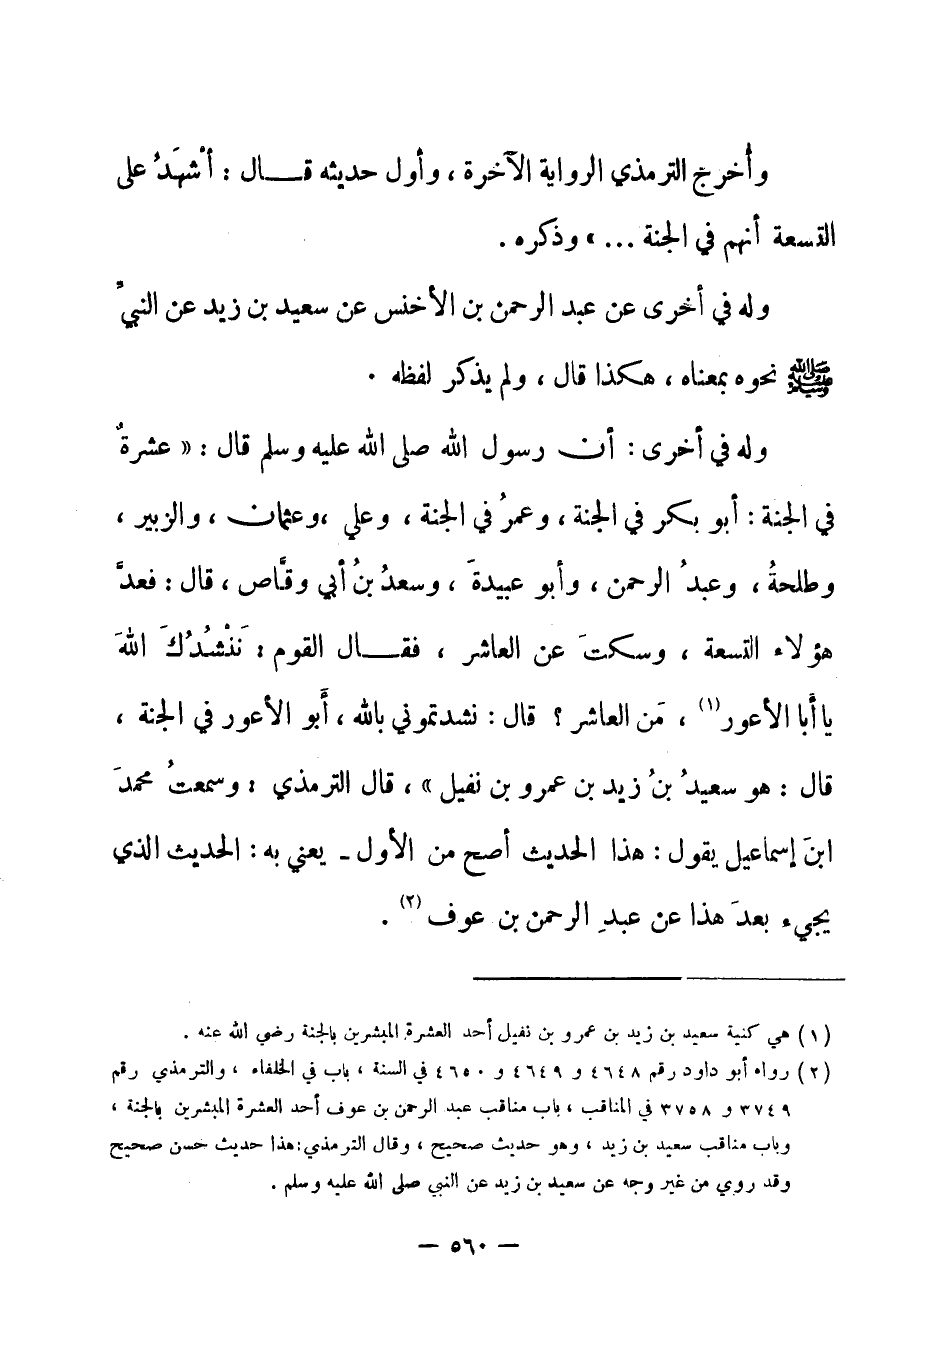 وأخرج الترمذي الرواية الآخرة ، وأول حديثه قــال : أشْهَدُ على
التسعة أنهم في الجنة ... » وذكره .
وله في أخرى عن عبد الرحمن بن الأخنس عن سعيد بن زيد عن النبيِّ
ﷺ نحوه بمعناه ، هكذا قال ، ولم يذكر لفظه .
وله في أخرى : أن رسول الله صلى الله عليه وسلم قال : « عشرةٌ
في الجنة : أبو بكر في الجنة ، وعمرُ في الجنة ، وعلي ، وعثمان ، والزبير ،
وطلحةُ ، وعبدُ الرحمن ، وأبو عبيدةَ ، وسعدُ بنُ أبي وقَّاص ، قال : فعدَّ
هؤلاء التسعة ، وسكتَ عن العاشر ، فقــال القوم : نَنْشُدُكَ اللهَ
يا أبا الأعور(١) ، مَن العاشر ؟ قال : نشدتموني بالله ، أبو الأعور في الجنة ،
قال : هو سعيدُ بنُ زيد بن عمرو بن نفيل » ، قال الترمذي : وسمعتُ محمدَ
ابنَ إسماعيل يقول : هذا الحديث أصح من الأول ـ يعني به : الحديث الذي
يجيء بعدَ هذا عن عبدِ الرحمن بن عوف (٢) .
(١) هي كنية سعيد بن زيد بن عمرو بن نفيل أحد العشرة المبشرين بالجنة رضي الله عنه .
(٢) رواه أبو داود رقم ٤٦٤٨ و ٤٦٤٩ و ٤٦٥٠ في السنة ، باب في الخلفاء ، والترمذي رقم
٣٧٤٩ و ٣٧٥٨ في المناقب ، باب مناقب عبد الرحمن بن عوف أحد العشرة المبشرين بالجنة ،
وباب مناقب سعيد بن زيد ، وهو حديث صحيح ، وقال الترمذي : هذا حديث حسن صحيح
وقد روي من غير وجه عن سعيد بن زيد عن النبي صلى الله عليه وسلم .
— ٥٦٠ —